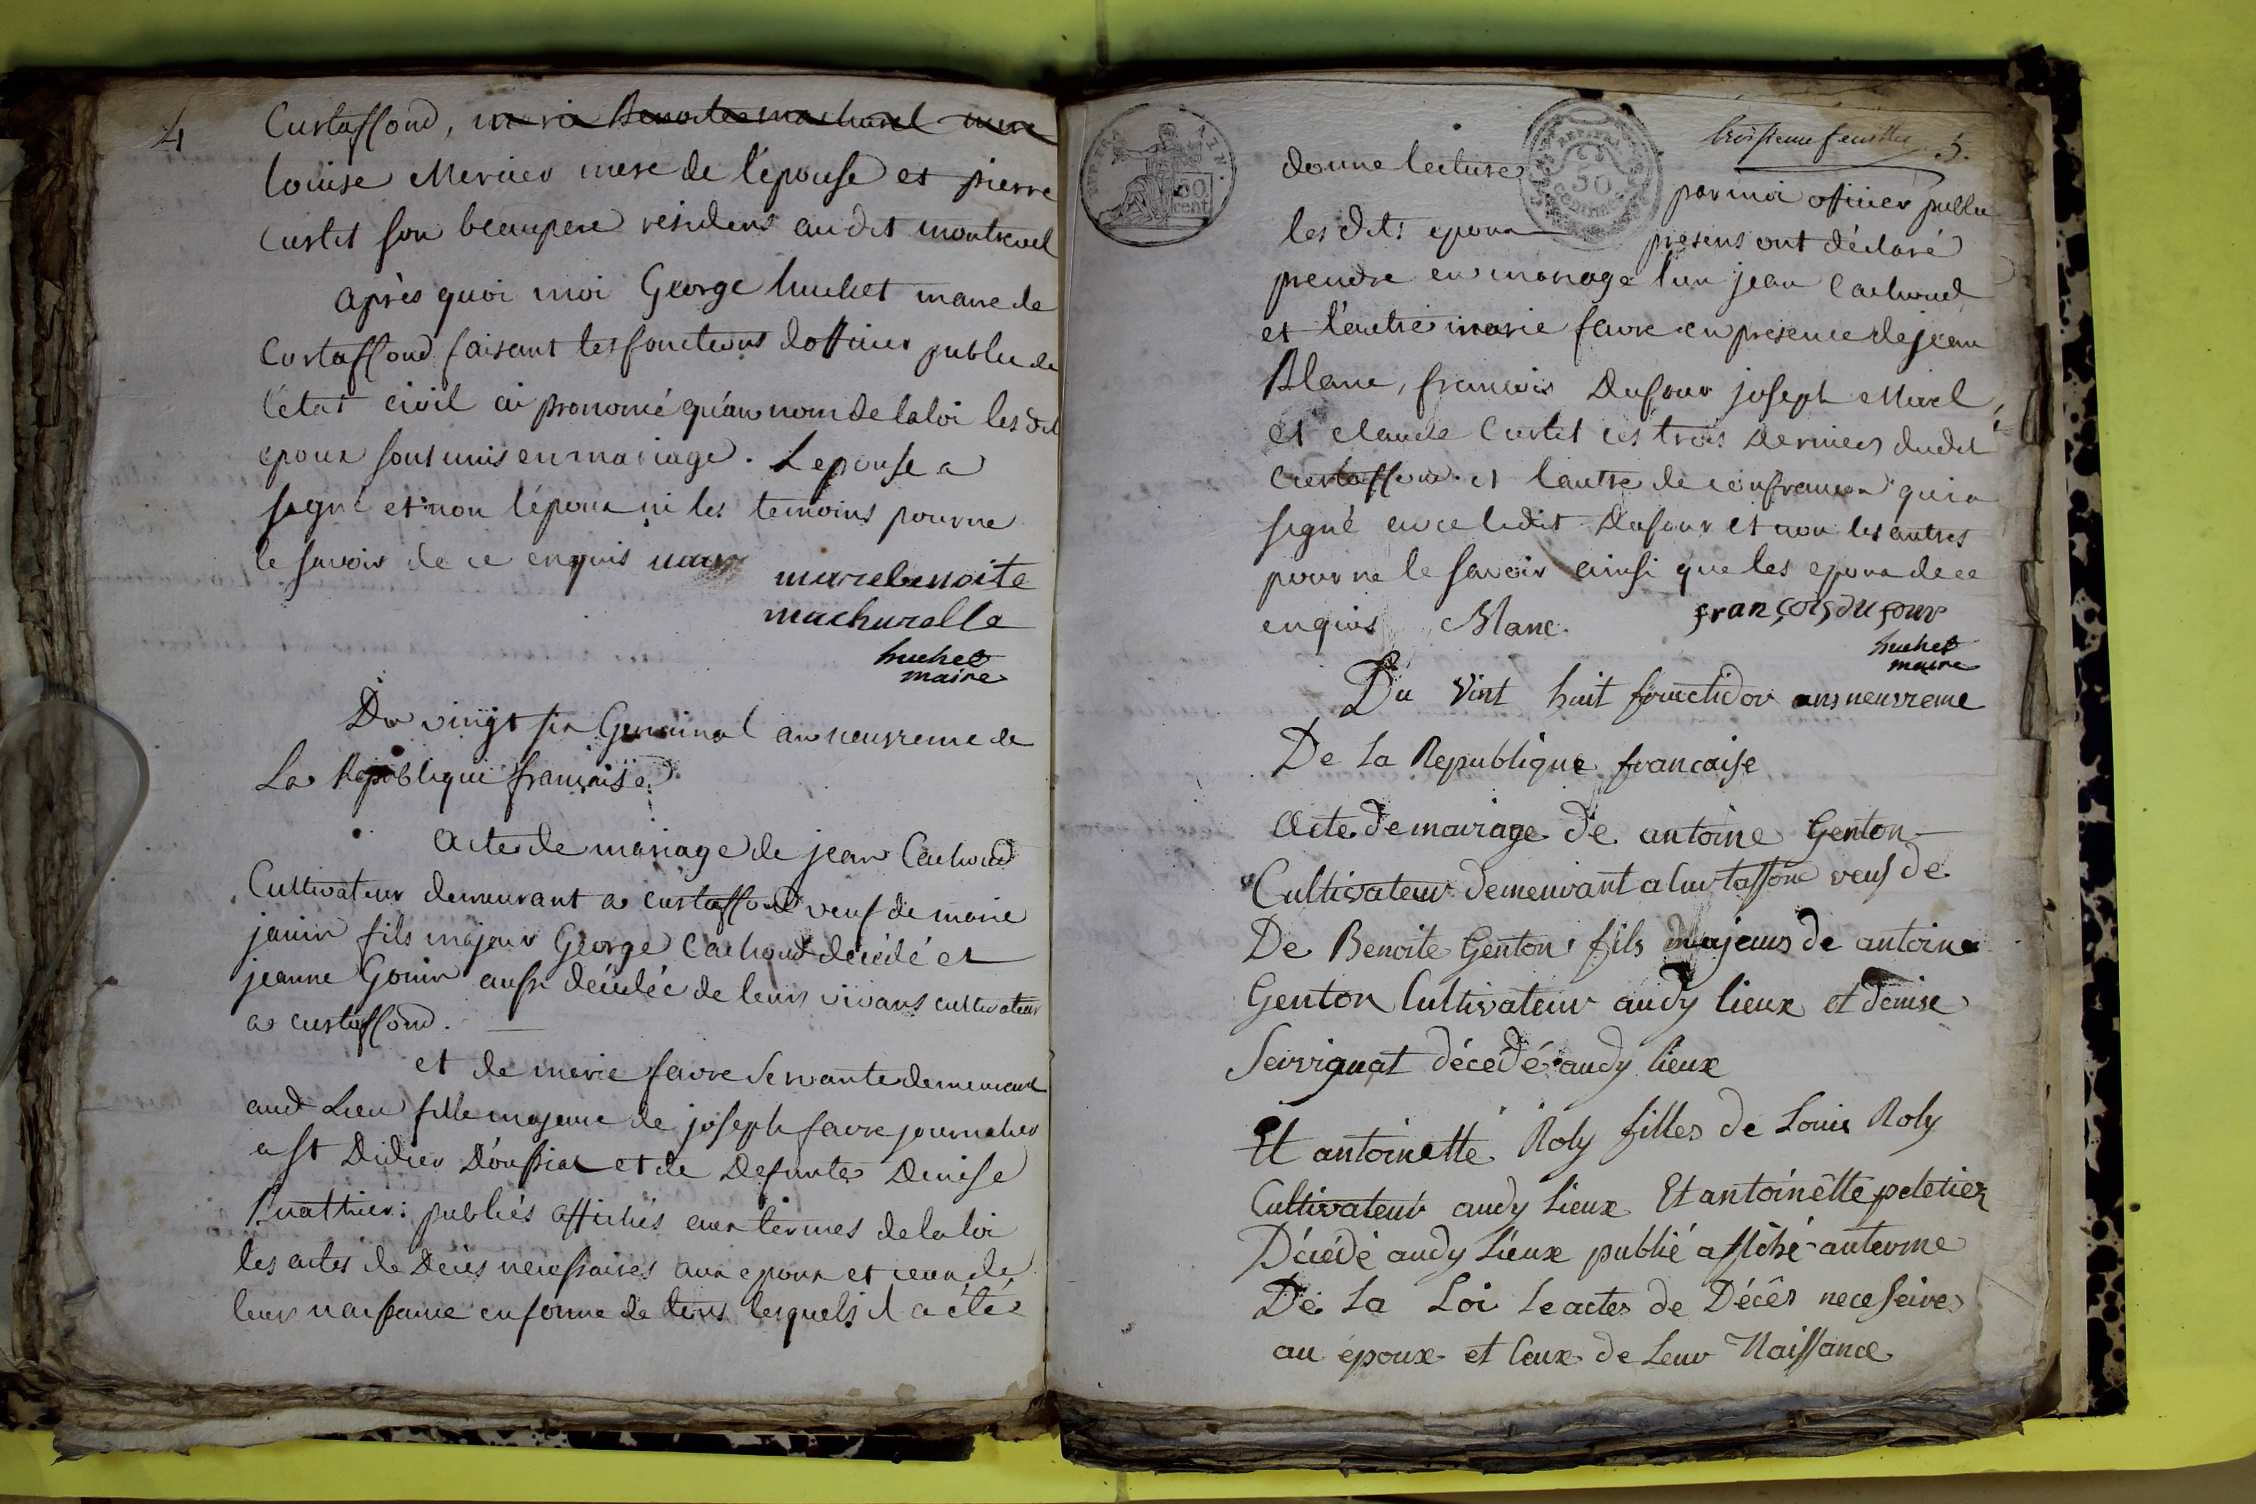 4
Curtaffond,
louise Mercier mere de l'épouse et pierre
curtet son beaupere residens audit montrevel
après quoi moi George huchet maire de
Curtaffond faisant les fonctions d'officier public de
l'état civil ai prononcé qu'au nom de la loi les dit
epoux sont unis en mariage. Lepouse a
signé et non l'époux ni les temoins pour ne
le savoir de ce enquis
marie benoite
machurelle
huchet
maire
Du vingt six Germinal an neuvieme de
La Republique française
acte de mariage de jean Cachoud
Cultivateur demeurant a curtaffond veuf de marie
janin fils majeur George Cachoud décédé et
jeanne Gonin aussi décédée de leurs vivans cultivateur
a curtaffond.
et de marie favre Servante demeurant
aud Lieu fille majeure de joseph favre journalier
a St Didier D'oussiat et de Defunte Denise
Buathier: publiés affichés aux termes de la loi
les actes de Deces necessaires aux epoux et ceux de
leur naissance en forme de tous lesquels il a été
troisieme feuillet 5.
50
cent
50
donne lecture par moi officier public
les dits epoux presens ont déclaré
prendre en mariage l'un jean Cachoud
et l'autre marie favre en presence de jean
Blanc, francois Dufour joseph Morel,
et claude Curtet ces trois derniers dudit
Curtaffond et l'autre de confrancon qui a
signé avec ledit Dufour et non les autres
pour ne le savoir ainsi que les epoux de ce
enquis Blanc. françois dufour
huchet
maire
Du Vint huit fructidor ans neuvieme
De La Republique francaise
Acte de mariage de antoine Genton
Cultivateur demeurant a Curtaffon veuf de
De Benoite Genton fils majeurs de antoine
Genton Cultivateur audy lieux et denise
Servignat décédé audy lieux
Et antoinette Roly filles de Louis Roly
Cultivateur audy Lieux Et antoinette peletier
Décédé audy Lieux publié affiché auterme
De La Loi Le actes de Décès neceseires
au époux et Ceux de Leur Naissance